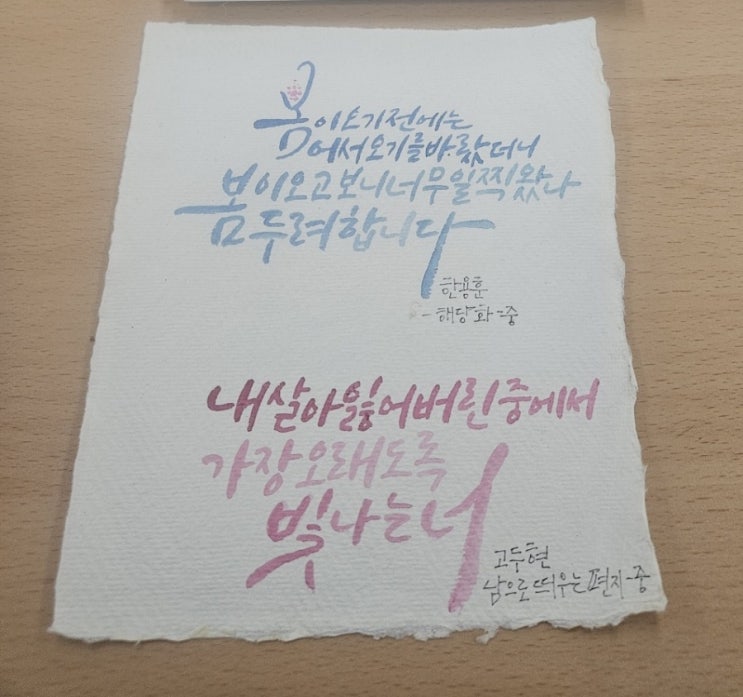 봄이오기전에는
어서오기를바랐더니
봄이오고보니너무일찍왔나
봄두려합니다
한용훈
-해당화-중
내살아잃어버린중에서
가장오래도록
빛나는너
고두현
남으로띄우는편지-중